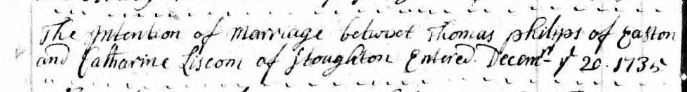 The Intention of Marriage betwixt Thomas philips of Easton
and Catharine Liscom of Stoughton Entered Decemr ye 20. 1735